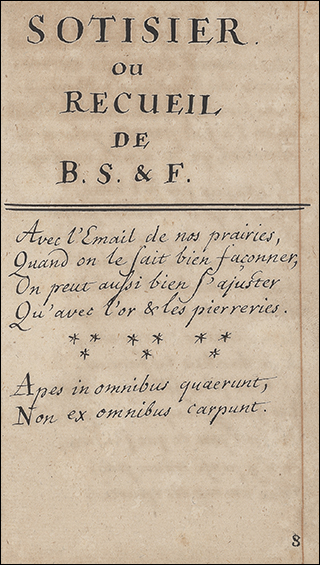 SOTISIER.
OU
RECUEIL
DE
B. S. & F.
Avec l'Email de nos prairies,
Quand on le sait bien façonner,
On peut aussi bien s'ajuster
Qu'avec l'or & les pierreries.
** ** **
* * *
Apes in omnibus quaerunt,
Non ex omnibus carpunt.
8